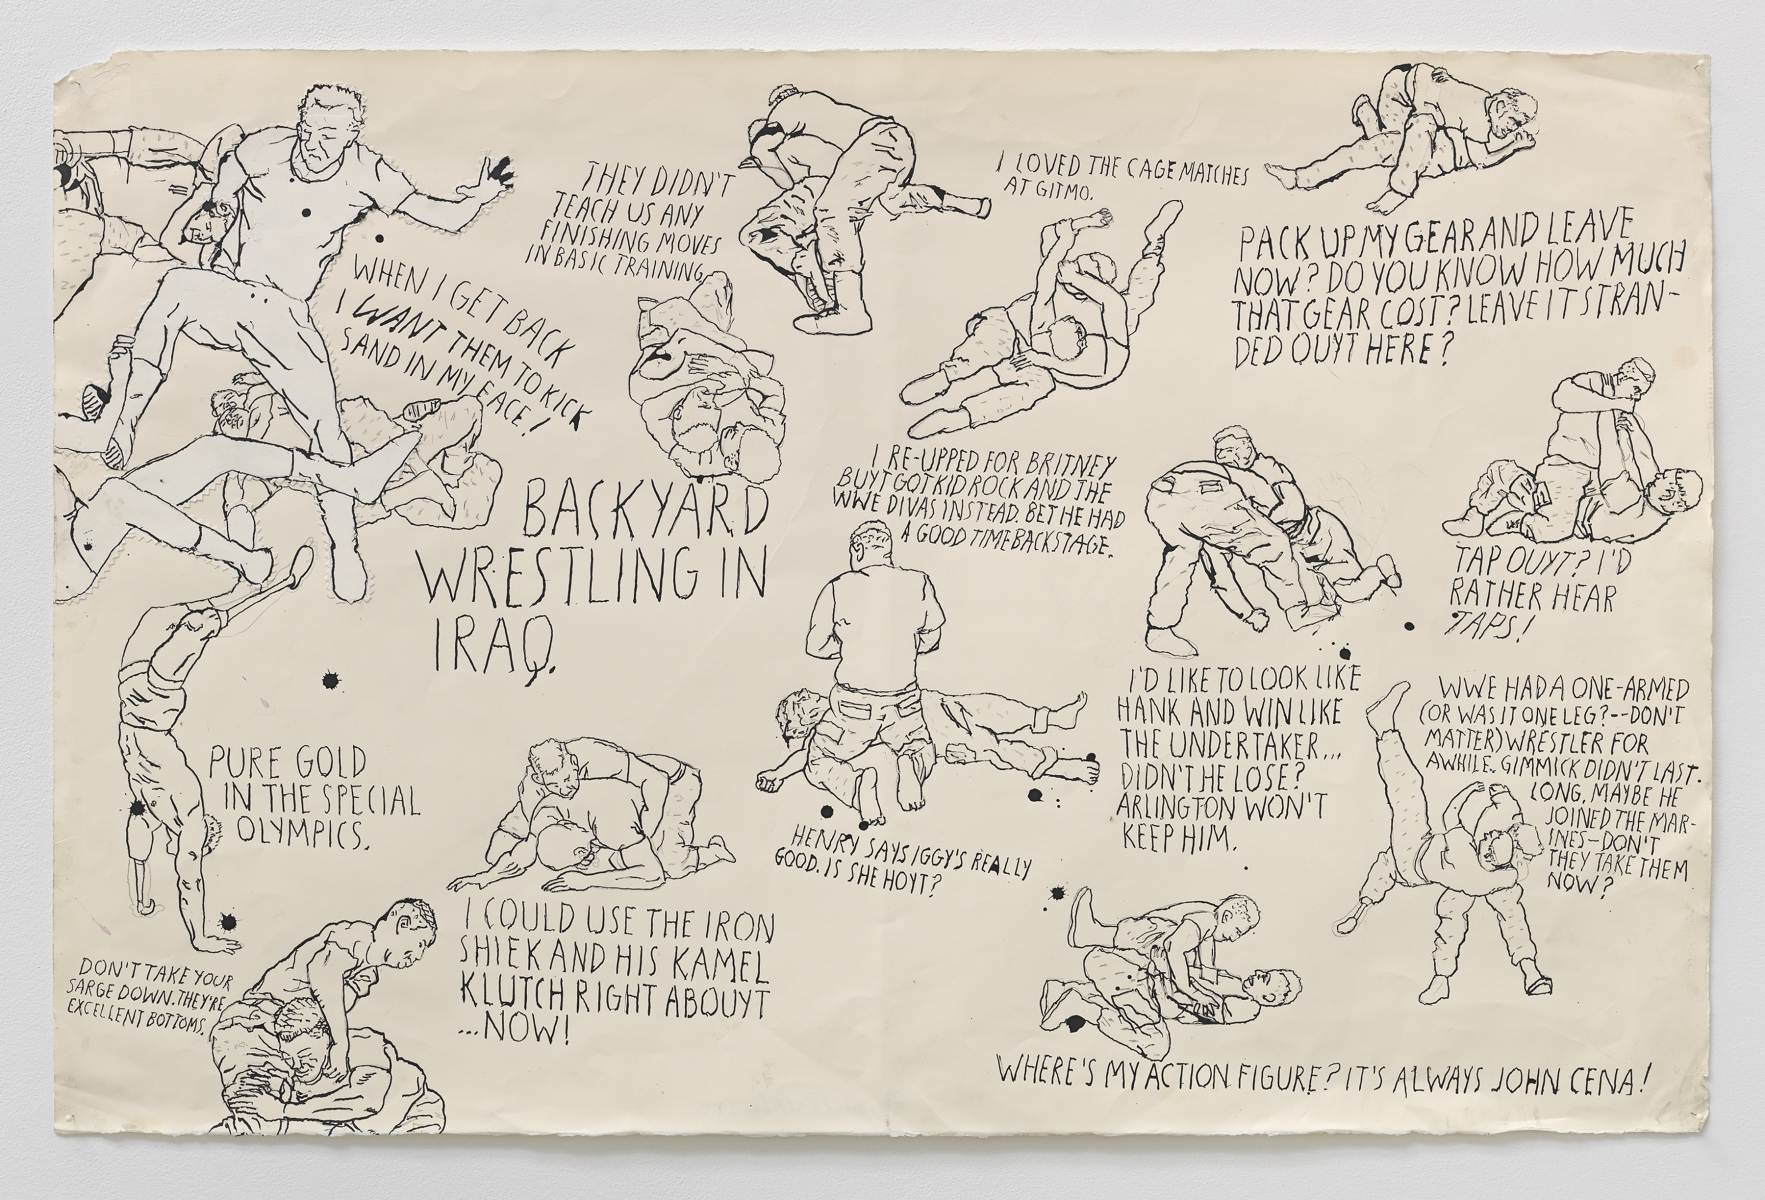 THEY DIDN'T
TEACH US ANY
FINISHING MOVES
IN BASIC TRAINING.
I LOVED THE CAGE MATCHES
AT GITMO.
PACK UP MY GEAR AND LEAVE
NOW? DO YOU KNOW HOW MUCH
THAT GEAR COST? LEAVE IT STRAN-
DED OUYT HERE?
WHEN I GET BACK
I WANT THEM TO KICK
SAND IN MY FACE!
I RE-UPPED FOR BRITNEY
BUYT GOT KID ROCK AND THE
WWE DIVAS INSTEAD. BET HE HAD
A GOOD TIME BACKSTAGE.
BACKYARD
WRESTLING IN
IRAQ.
TAP OUYT? I'D
RATHER HEAR
TAPS!
I'D LIKE TO LOOK LIKE
HANK AND WIN LIKE
THE UNDERTAKER...
DIDN'T HE LOSE?
ARLINGTON WON'T
KEEP HIM.
WWE HAD A ONE-ARMED
(OR WAS IT ONE LEG?--DON'T
MATTER) WRESTLER FOR
AWHILE. GIMMICK DIDN'T LAST.
LONG. MAYBE HE
JOINED THE MAR-
INES-DON'T
THEY TAKE THEM
NOW?
PURE GOLD
IN THE SPECIAL
OLYMPICS.
HENRY SAYS IGGY'S REALLY
GOOD. IS SHE HOYT?
I COULD USE THE IRON
SHIEK AND HIS KAMEL
KLUTCH RIGHT ABOUYT
...NOW!
DON'T TAKE YOUR
SARGE DOWN. THEY'RE
EXCELLENT BOTTOMS.
WHERE'S MY ACTION FIGURE? IT'S ALWAYS JOHN CENA!